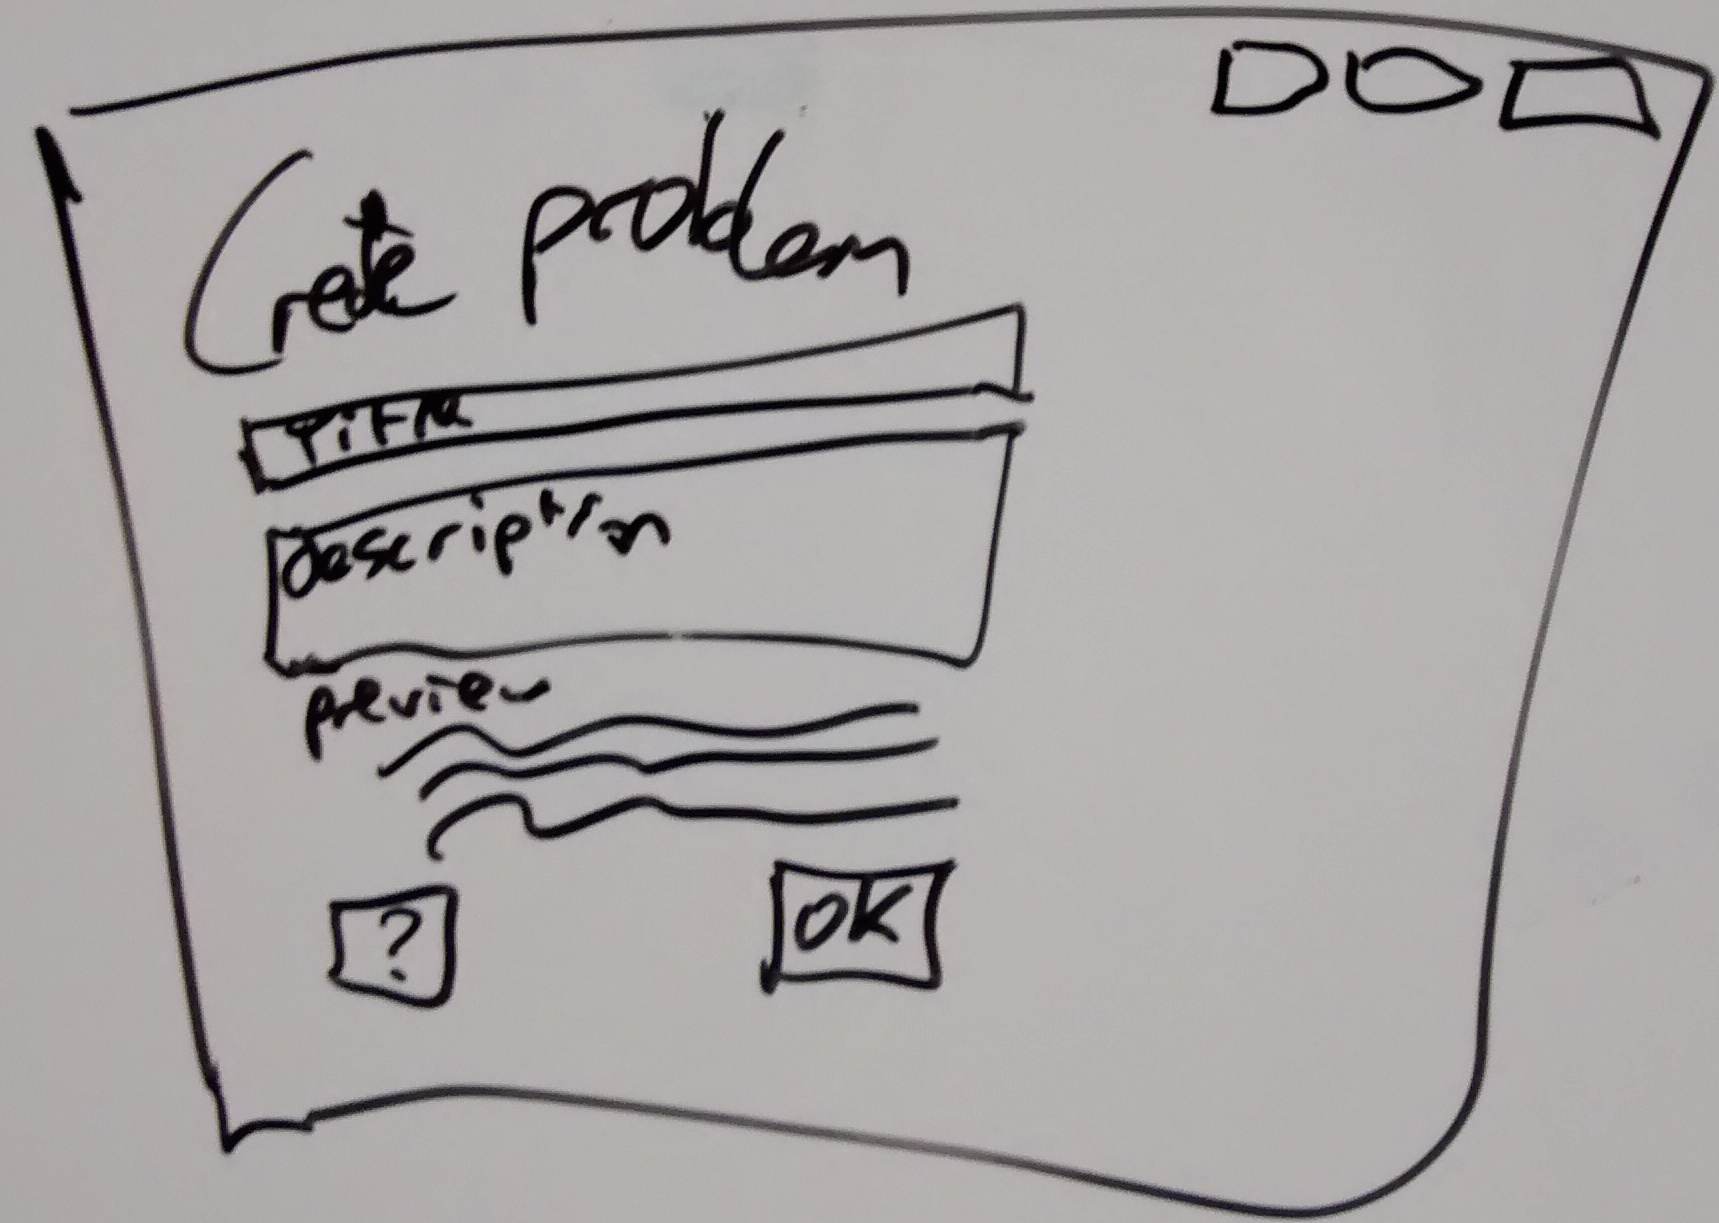 Crete problem
Title
description
preview
?
OK